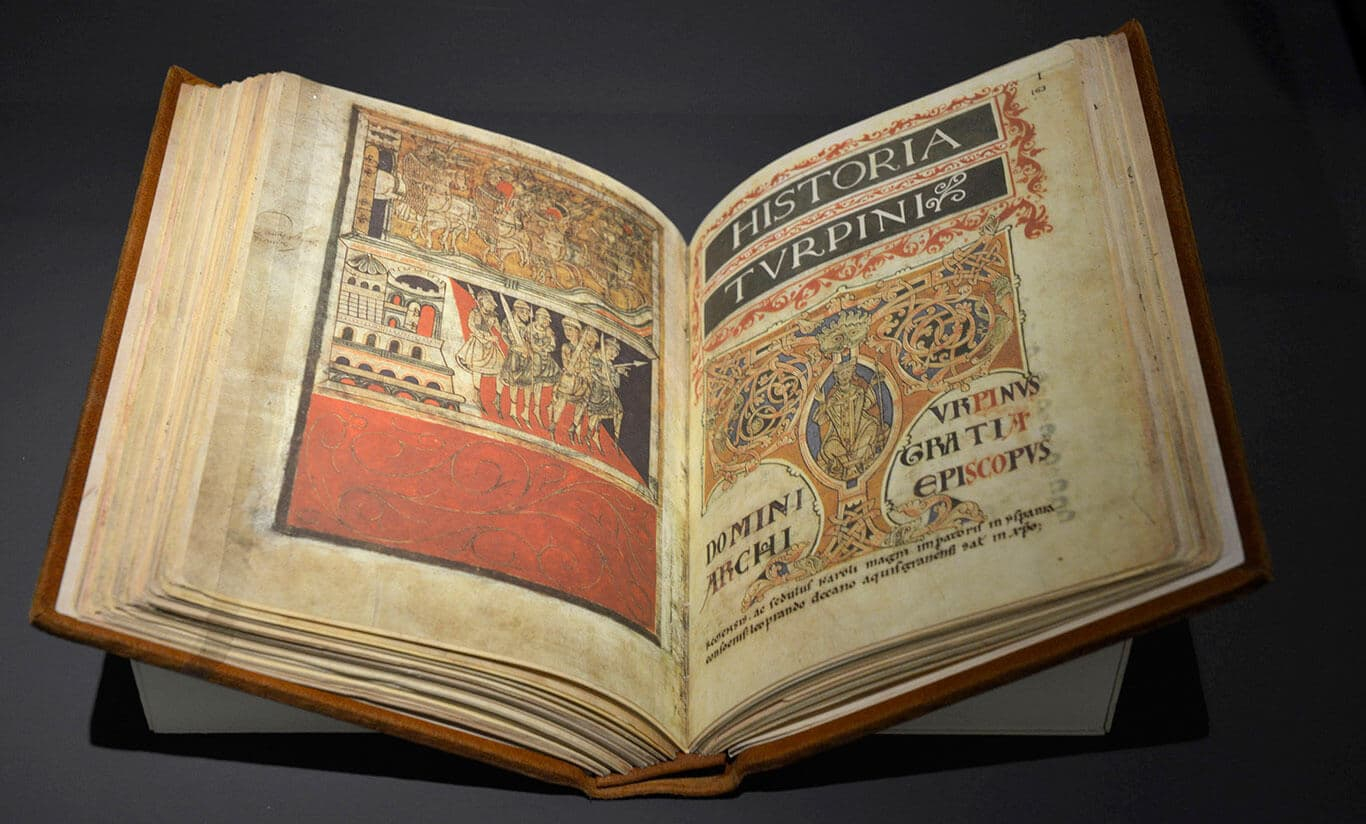 I
163
HISTORIA
TVRPINI
VRPINVS
DOMINI GRATIA
ARCHI EPISCOPVS
remensis. ac sedulus karoli magni imperatoris in yspania
consocius leoprando decano aquisgranensi sal in xpo;